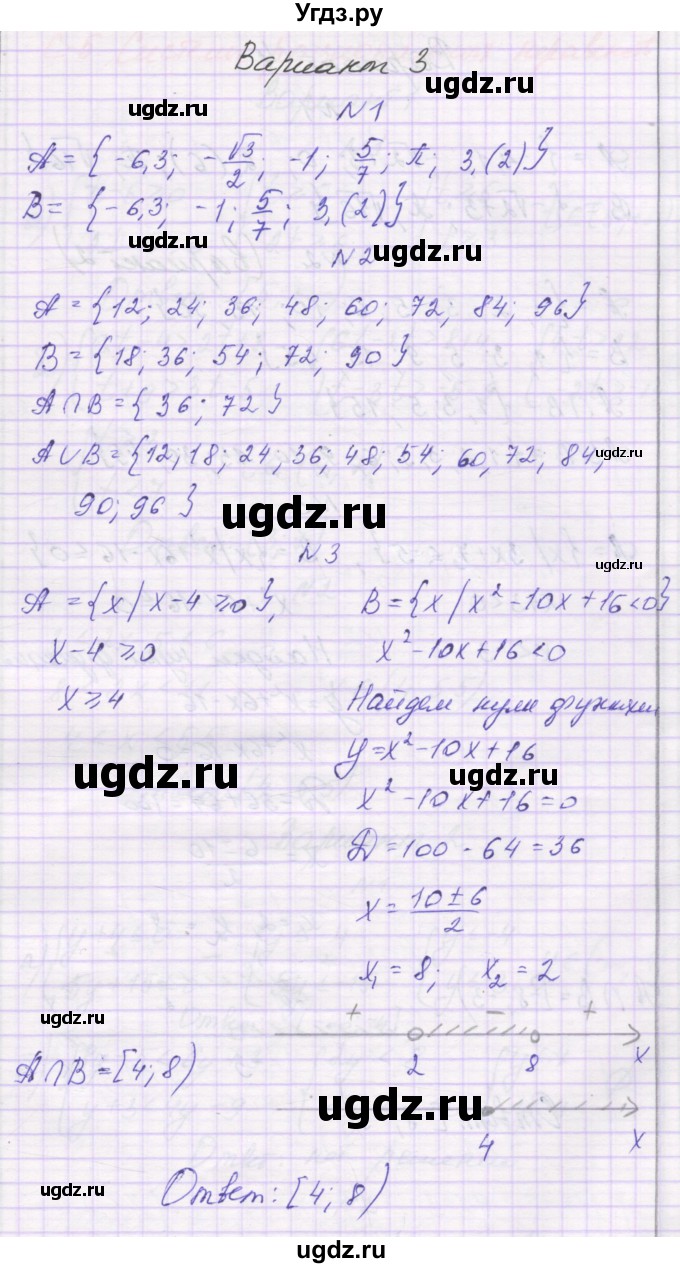 Угдз.ру
Вариант 3
ugdz.ru
N1
A = { -6,3; -√3/2, -1; 5/7; π; 3,(2)}
B = {-6,3; -1; 5/7; 3,(2)}
ugdz.ru
N2
A = {12; 24; 36; 48; 60; 72; 84; 96}
B = {18; 36; 54; 72; 90}
A∩B = {36; 72}
A∪B = {12, 18; 24; 36; 48; 54; 60, 72, 84;
ugdz.ru
90; 96 }
ugdz.ru
N3
ugdz.ru
A = {x / x-4 ≥ 0},
B = {x / x² - 10x + 16 < 0}
x-4 ≥ 0
x² - 10x + 16 < 0
x ≥ 4
Найдем нули функции
y = x² - 10x + 16
ugdz.ru
ugdz.ru
x² - 10x + 16 = 0
D = 100 - 64 = 36
x = (10 ± 6)/2
x₁ = 8; x₂ = 2
ugdz.ru
+ - +
2 8 x
A∩B = [4; 8)
ugdz.ru
4 x
ugdz.ru
Ответ: [4; 8)
ugdz.ru